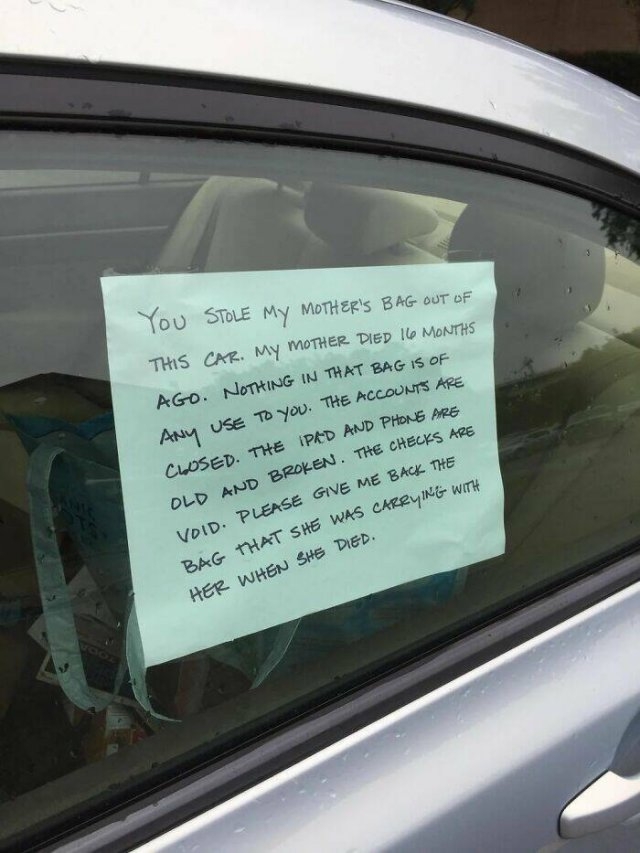 YOU STOLE MY MOTHER'S BAG OUT OF
THIS CAR. MY MOTHER DIED 16 MONTHS
AGO. NOTHING IN THAT BAG IS OF
ANY USE TO YOU. THE ACCOUNTS ARE
CLOSED. THE IPAD AND PHONE ARE
OLD AND BROKEN. THE CHECKS ARE
VOID. PLEASE GIVE ME BACK THE
BAG THAT SHE WAS CARRYING WITH
HER WHEN SHE DIED.